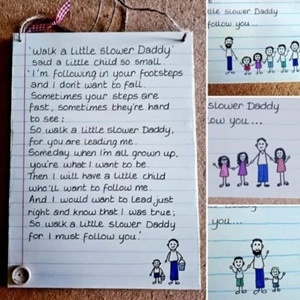 'Walk a little slower Daddy'
said a little child so small.
'I'm following in your footsteps
and I don't want to fall.
Sometimes your steps are
fast, sometimes they're hard
to see;
So walk a little slower Daddy,
for you are leading me.
Someday when I'm all grown up,
you're what I want to be.
Then I will have a little child
who'll want to follow me.
And I would want to lead just
right and know that I was true;
So walk a little slower Daddy
for I must follow you.'
slower Daddy
follow you...
slower Daddy
ow you...
you...